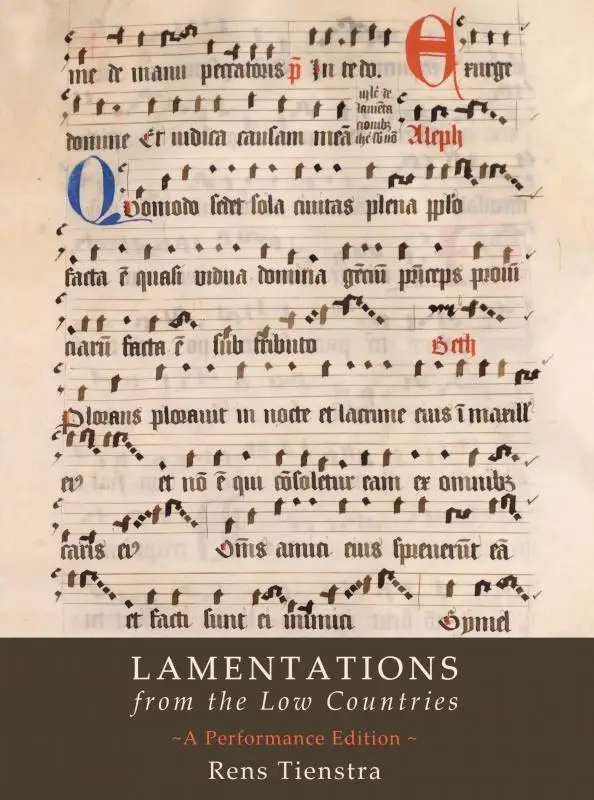 me de manu peccatoris p̄ In te do. Exurge
domine Et iudica causam meā
de
lamēta
cionibꝫ
Aleph
Quomodo sedet sola ciuitas plena pplo
facta ē quasi vidua domina gēciū prīceps prouī
ciarū facta ē sub tributo Beth
Plorans plorauit in nocte et lacrime eius ī maxill'
eiꝰ et nō ē qui cōsoletur eam ex omnibꝫ
caris eiꝰ Om̄s amici eius spreuerūt eā
et facti sunt ei inimici Gymel
LAMENTATIONS
from the Low Countries
~A Performance Edition ~
Rens Tienstra